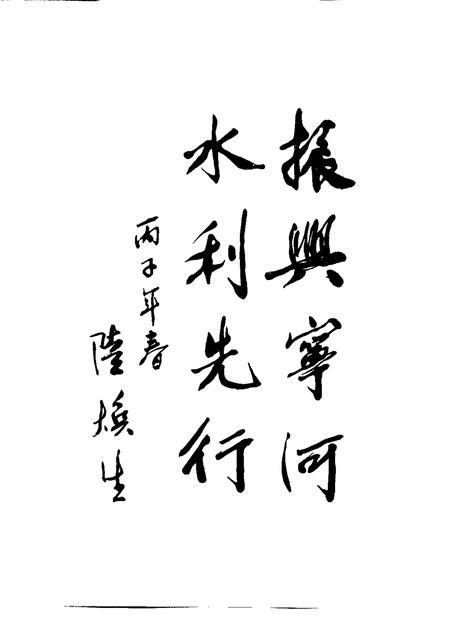 振興寧河
水利先行
丙子年春
陸煥生